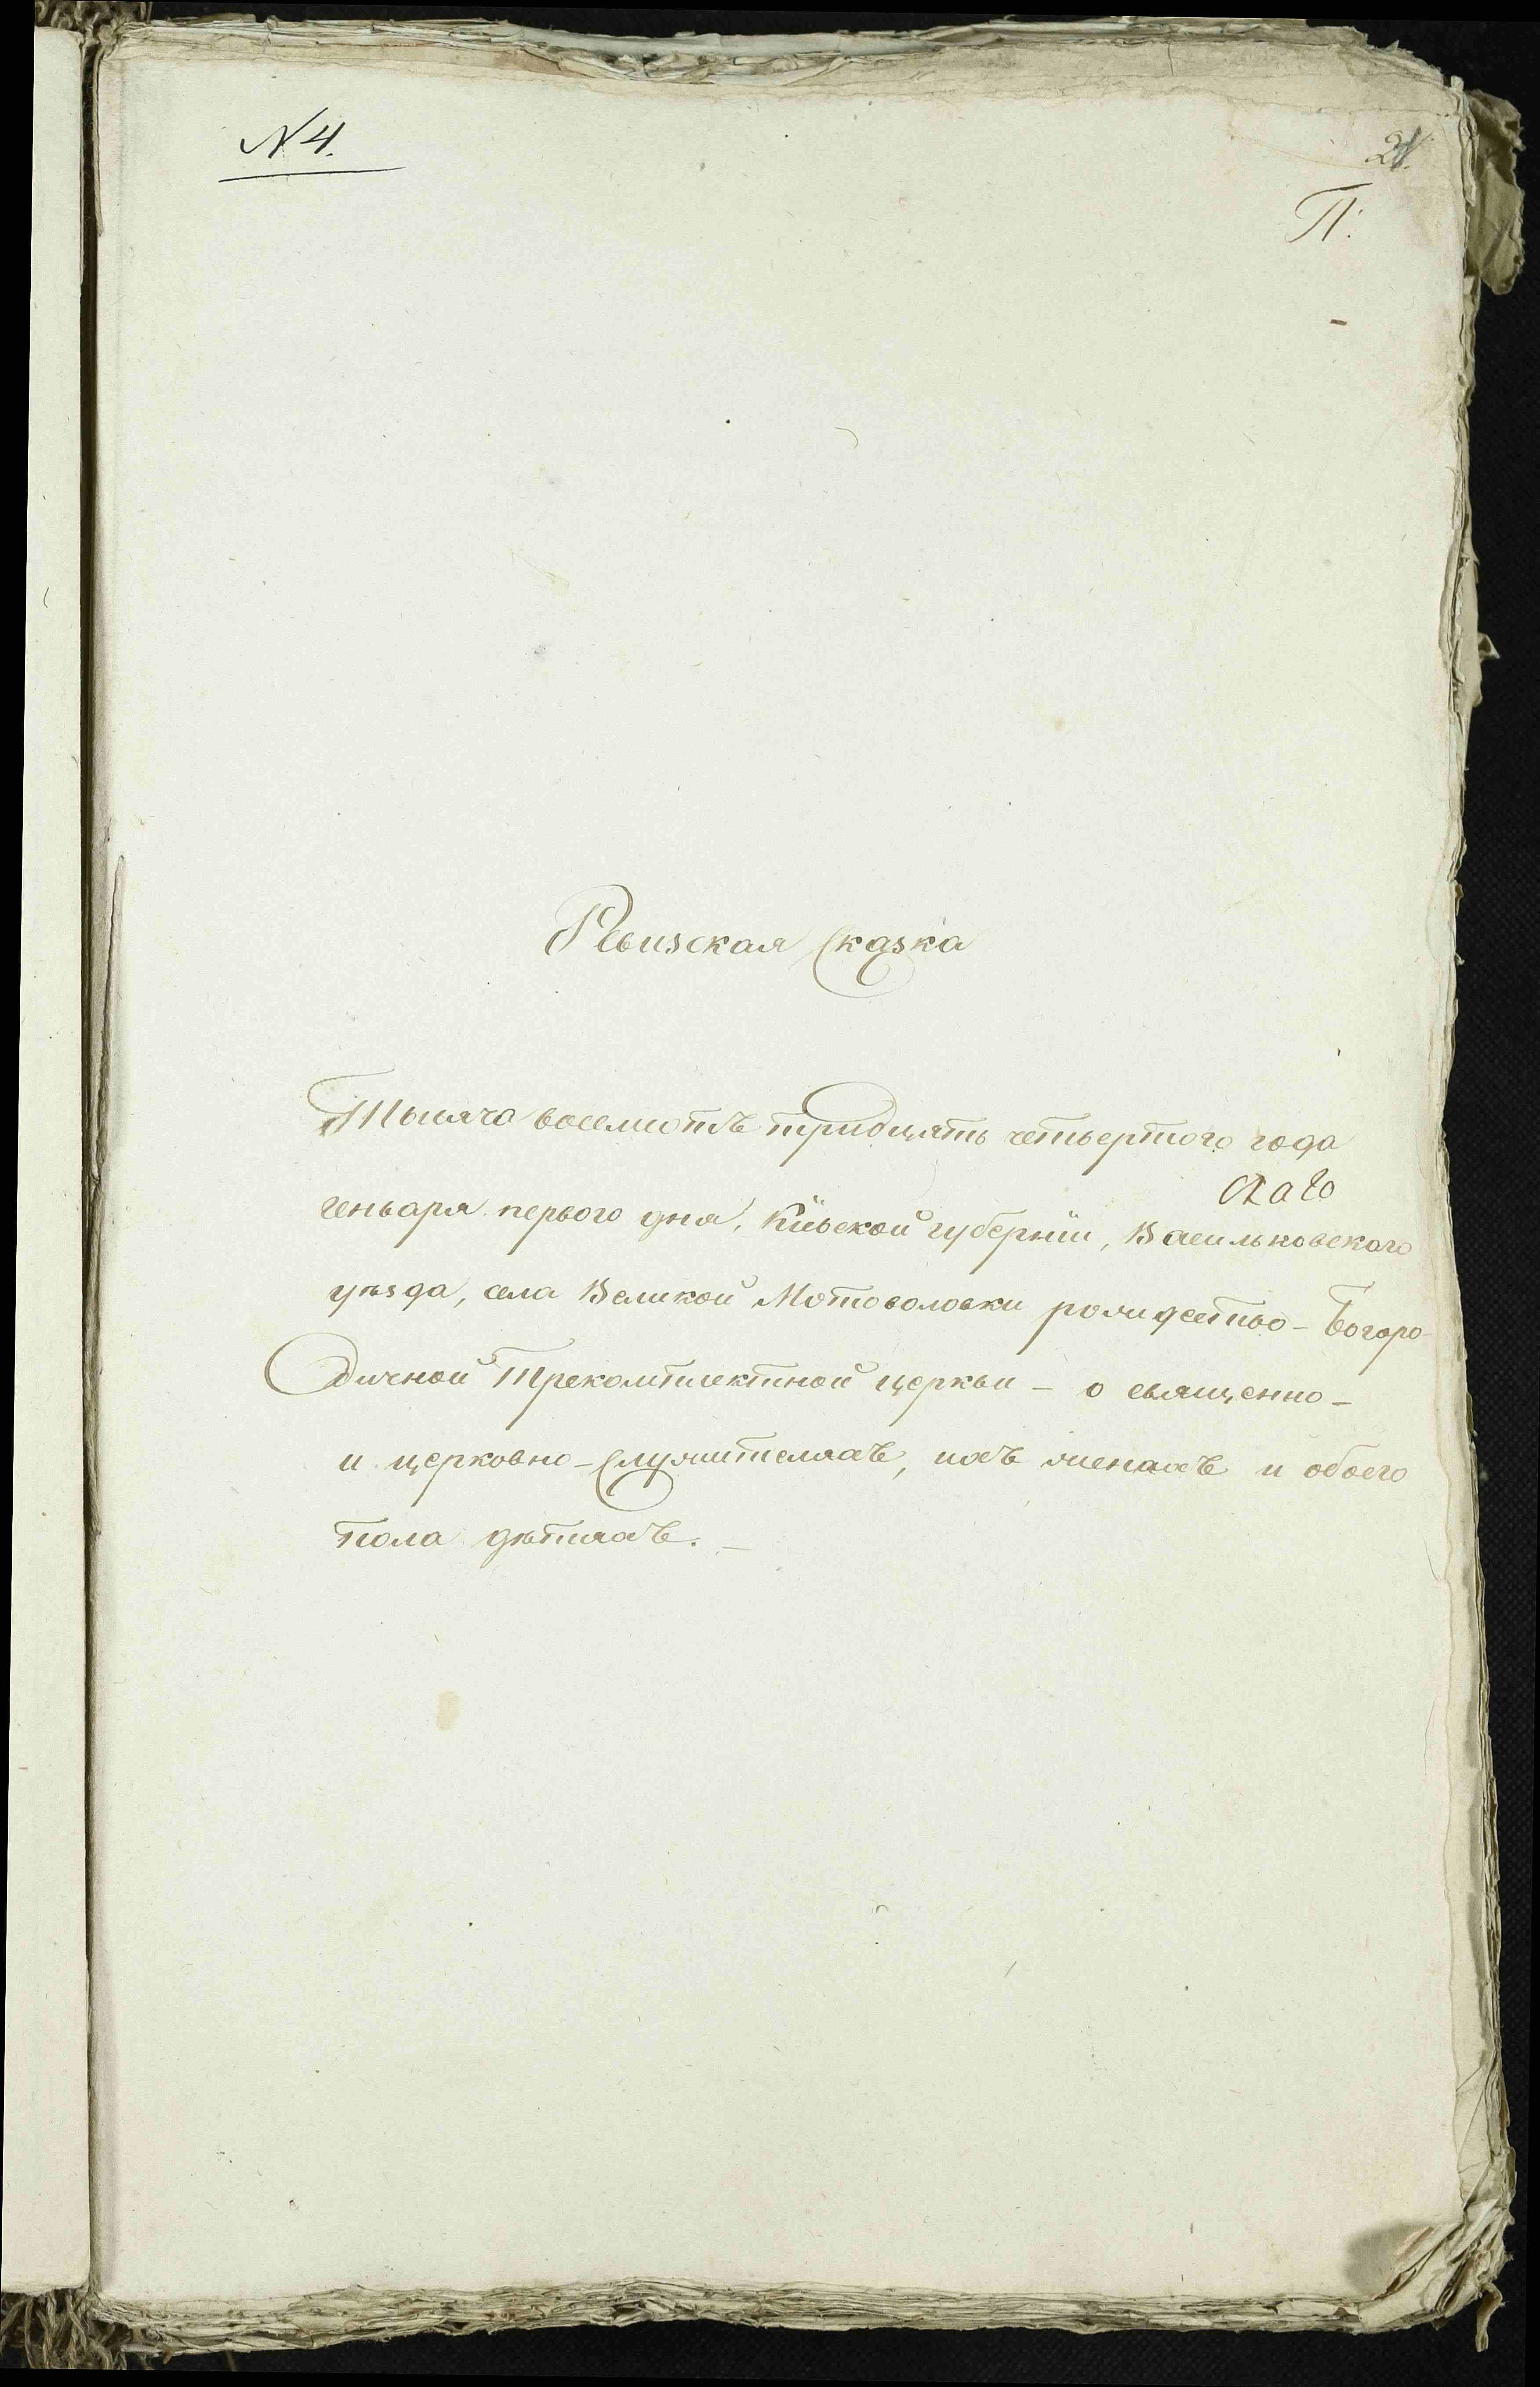 N 4.
21.
П:
Ревизская Сказка
Тысяча восемсотъ тридцять четвертого года
генваря первого дня, Кіевской губерніи, Васильковского
уѣзда, села Великой Мотовиловки рождество-Богоро-
дичной Трекомплектной церкви – о священно-
и церковно-Служителяхъ, ихъ женахъ и обоего
пола дѣтяхъ. –